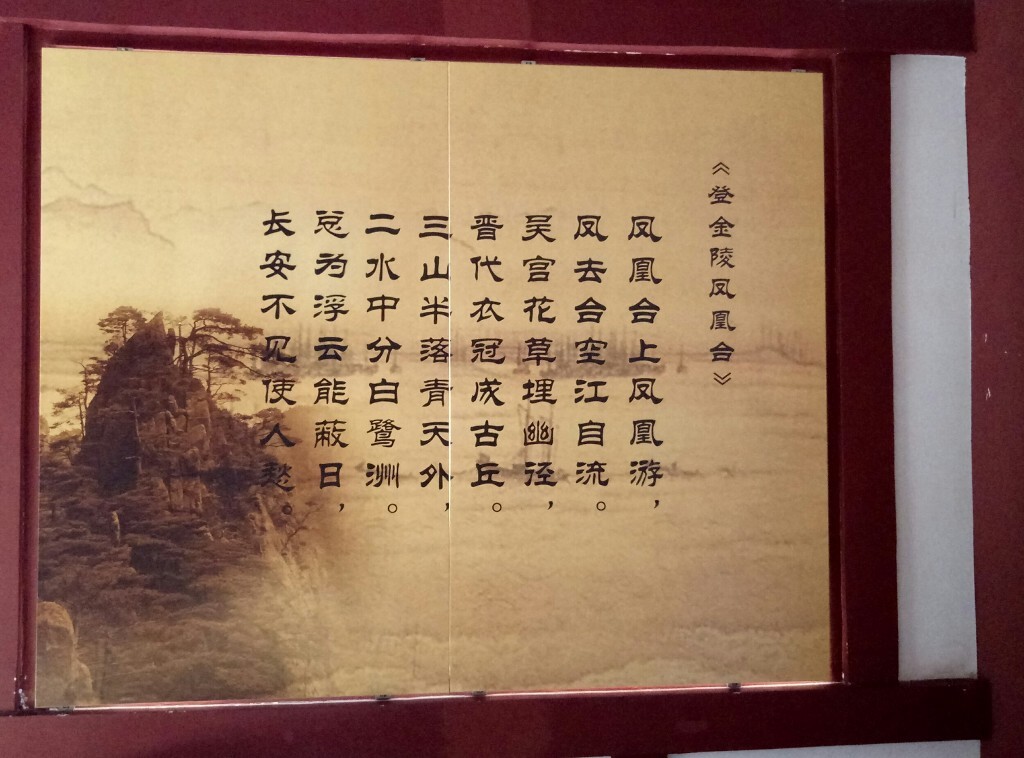 《登金陵凤凰台》
凤凰台上凤凰游，
凤去台空江自流。
吴宫花草埋幽径，
晋代衣冠成古丘。
三山半落青天外，
二水中分白鹭洲。
总为浮云能蔽日，
长安不见使人愁。